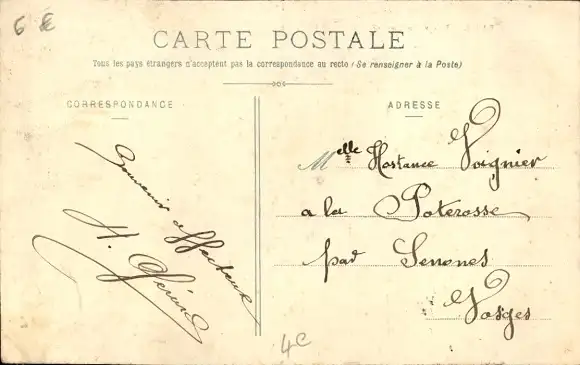 6 €
CARTE POSTALE
Tous les pays étrangers n'acceptent pas la correspondance au recto (Se renseigner à la Poste)
CORRESPONDANCE
Souvenir affectueux
H. Gérard
ADRESSE
Melle Hostance Voignier
a la Poterosse
par Senones
Vosges
4C